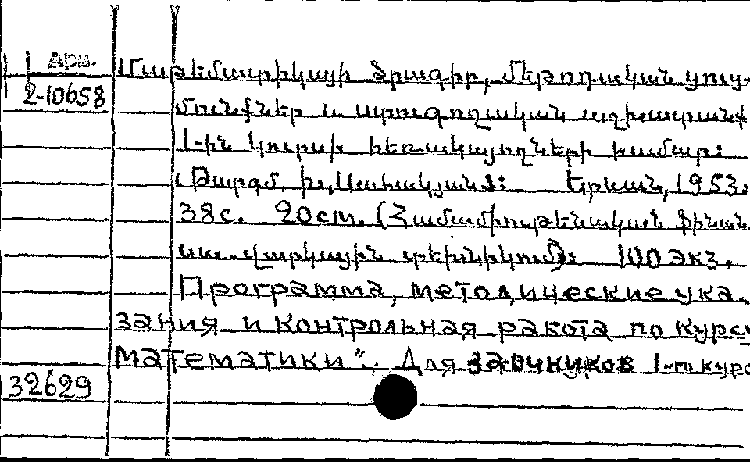 Арм.
2-10658
Մաթեմատիկայի ծրագիր, մեթոդական ցուց-
մունքներ և ստուգողական աշխատանք
1-ին կուրսի հեռակայողների համար:
(Թարգմ. Երևան, 1953.
38с. 20см. (Համամիութենական ֆինան-
սա-վարկային տեխնիկում): 100 экз.
Программа, методические ука-
зания и контрольная работа по курсу
математики". Для заочников 1-го курса
32629